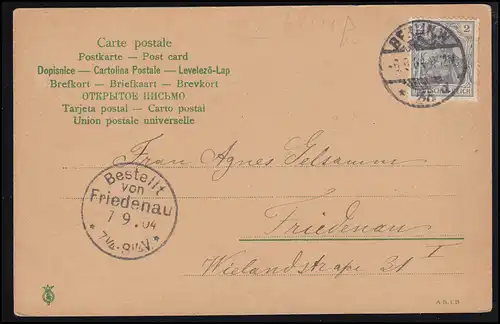 Carte postale
Postkarte — Post card
Dopisnice — Cartolina Postale — Levelező-Lap
Brefkort — Briefkaart — Brevkort
ОТКРЫТОЕ ПИСЬМО
Tarjeta postal — Carto postal
Union postale universelle
2
Frau Agnes Gelsamme
Bestellt
von
Friedenau
7 9.04
* 7¼-8¼V. *
Friedenau
Wielandstraße 31 I